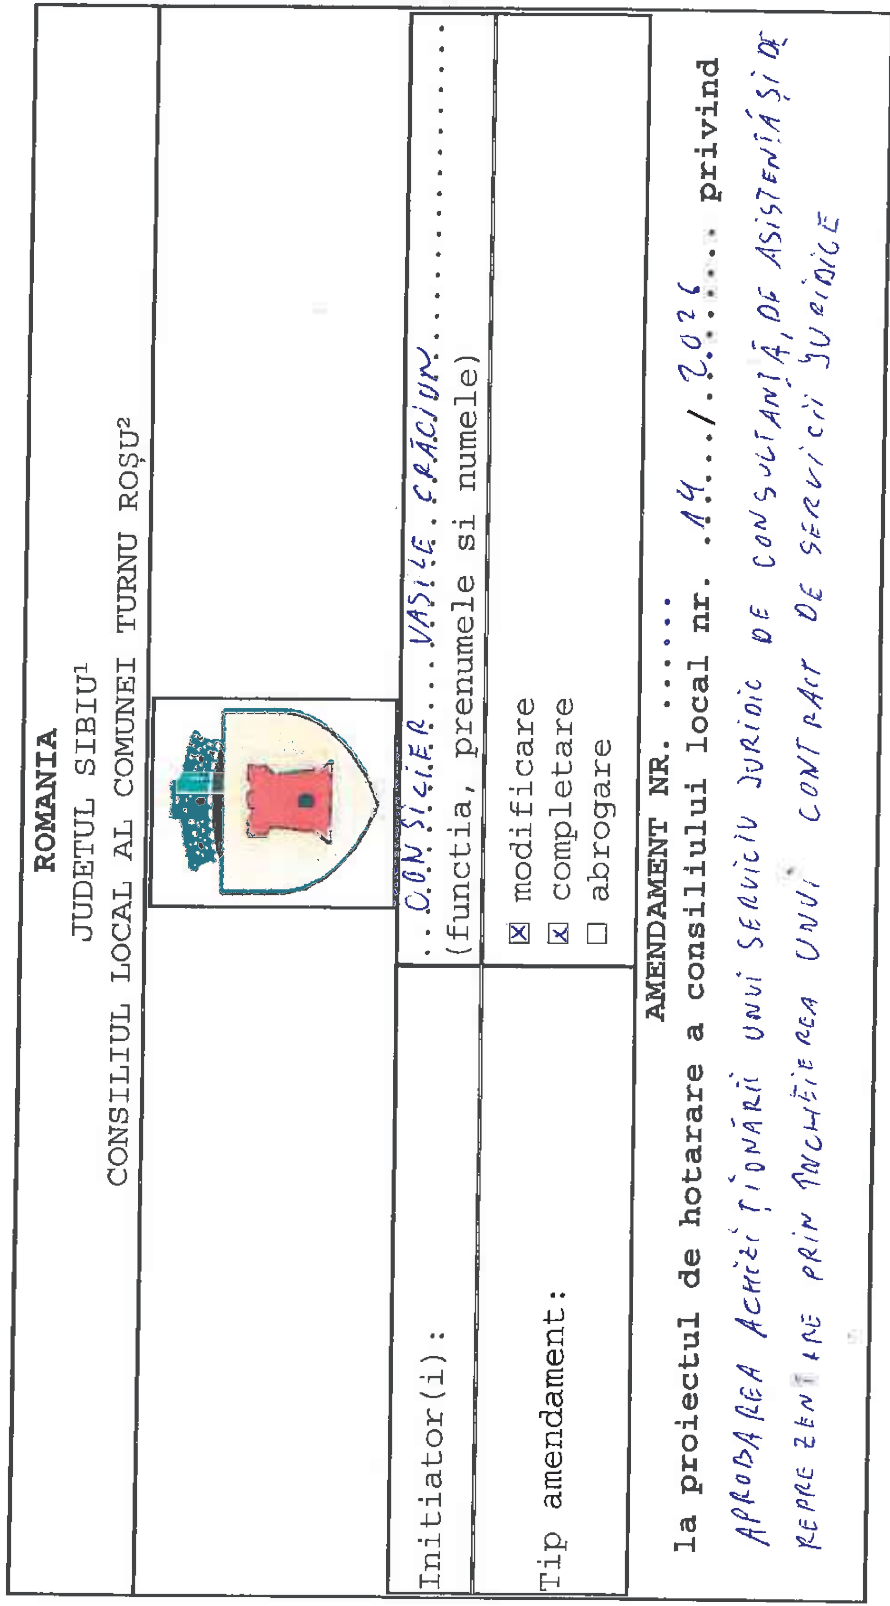 ROMANIA
JUDETUL SIBIU¹
CONSILIUL LOCAL AL COMUNEI TURNU ROȘU²
Initiator(i):
CONSILIER VASILE CRĂCIUN
(functia, prenumele si numele)
Tip amendament:
☒ modificare
☒ completare
☐ abrogare
AMENDAMENT NR. ......
la proiectul de hotarare a consiliului local nr. 14 / 2026 privind
APROBAREA ACHIZIȚIONĂRII UNUI SERVICIU JURIDIC DE CONSULTANȚĂ, DE ASISTENȚĂ ȘI DE
REPREZENTARE PRIN ÎNCHEIEREA UNUI CONTRACT DE SERVICII JURIDICE